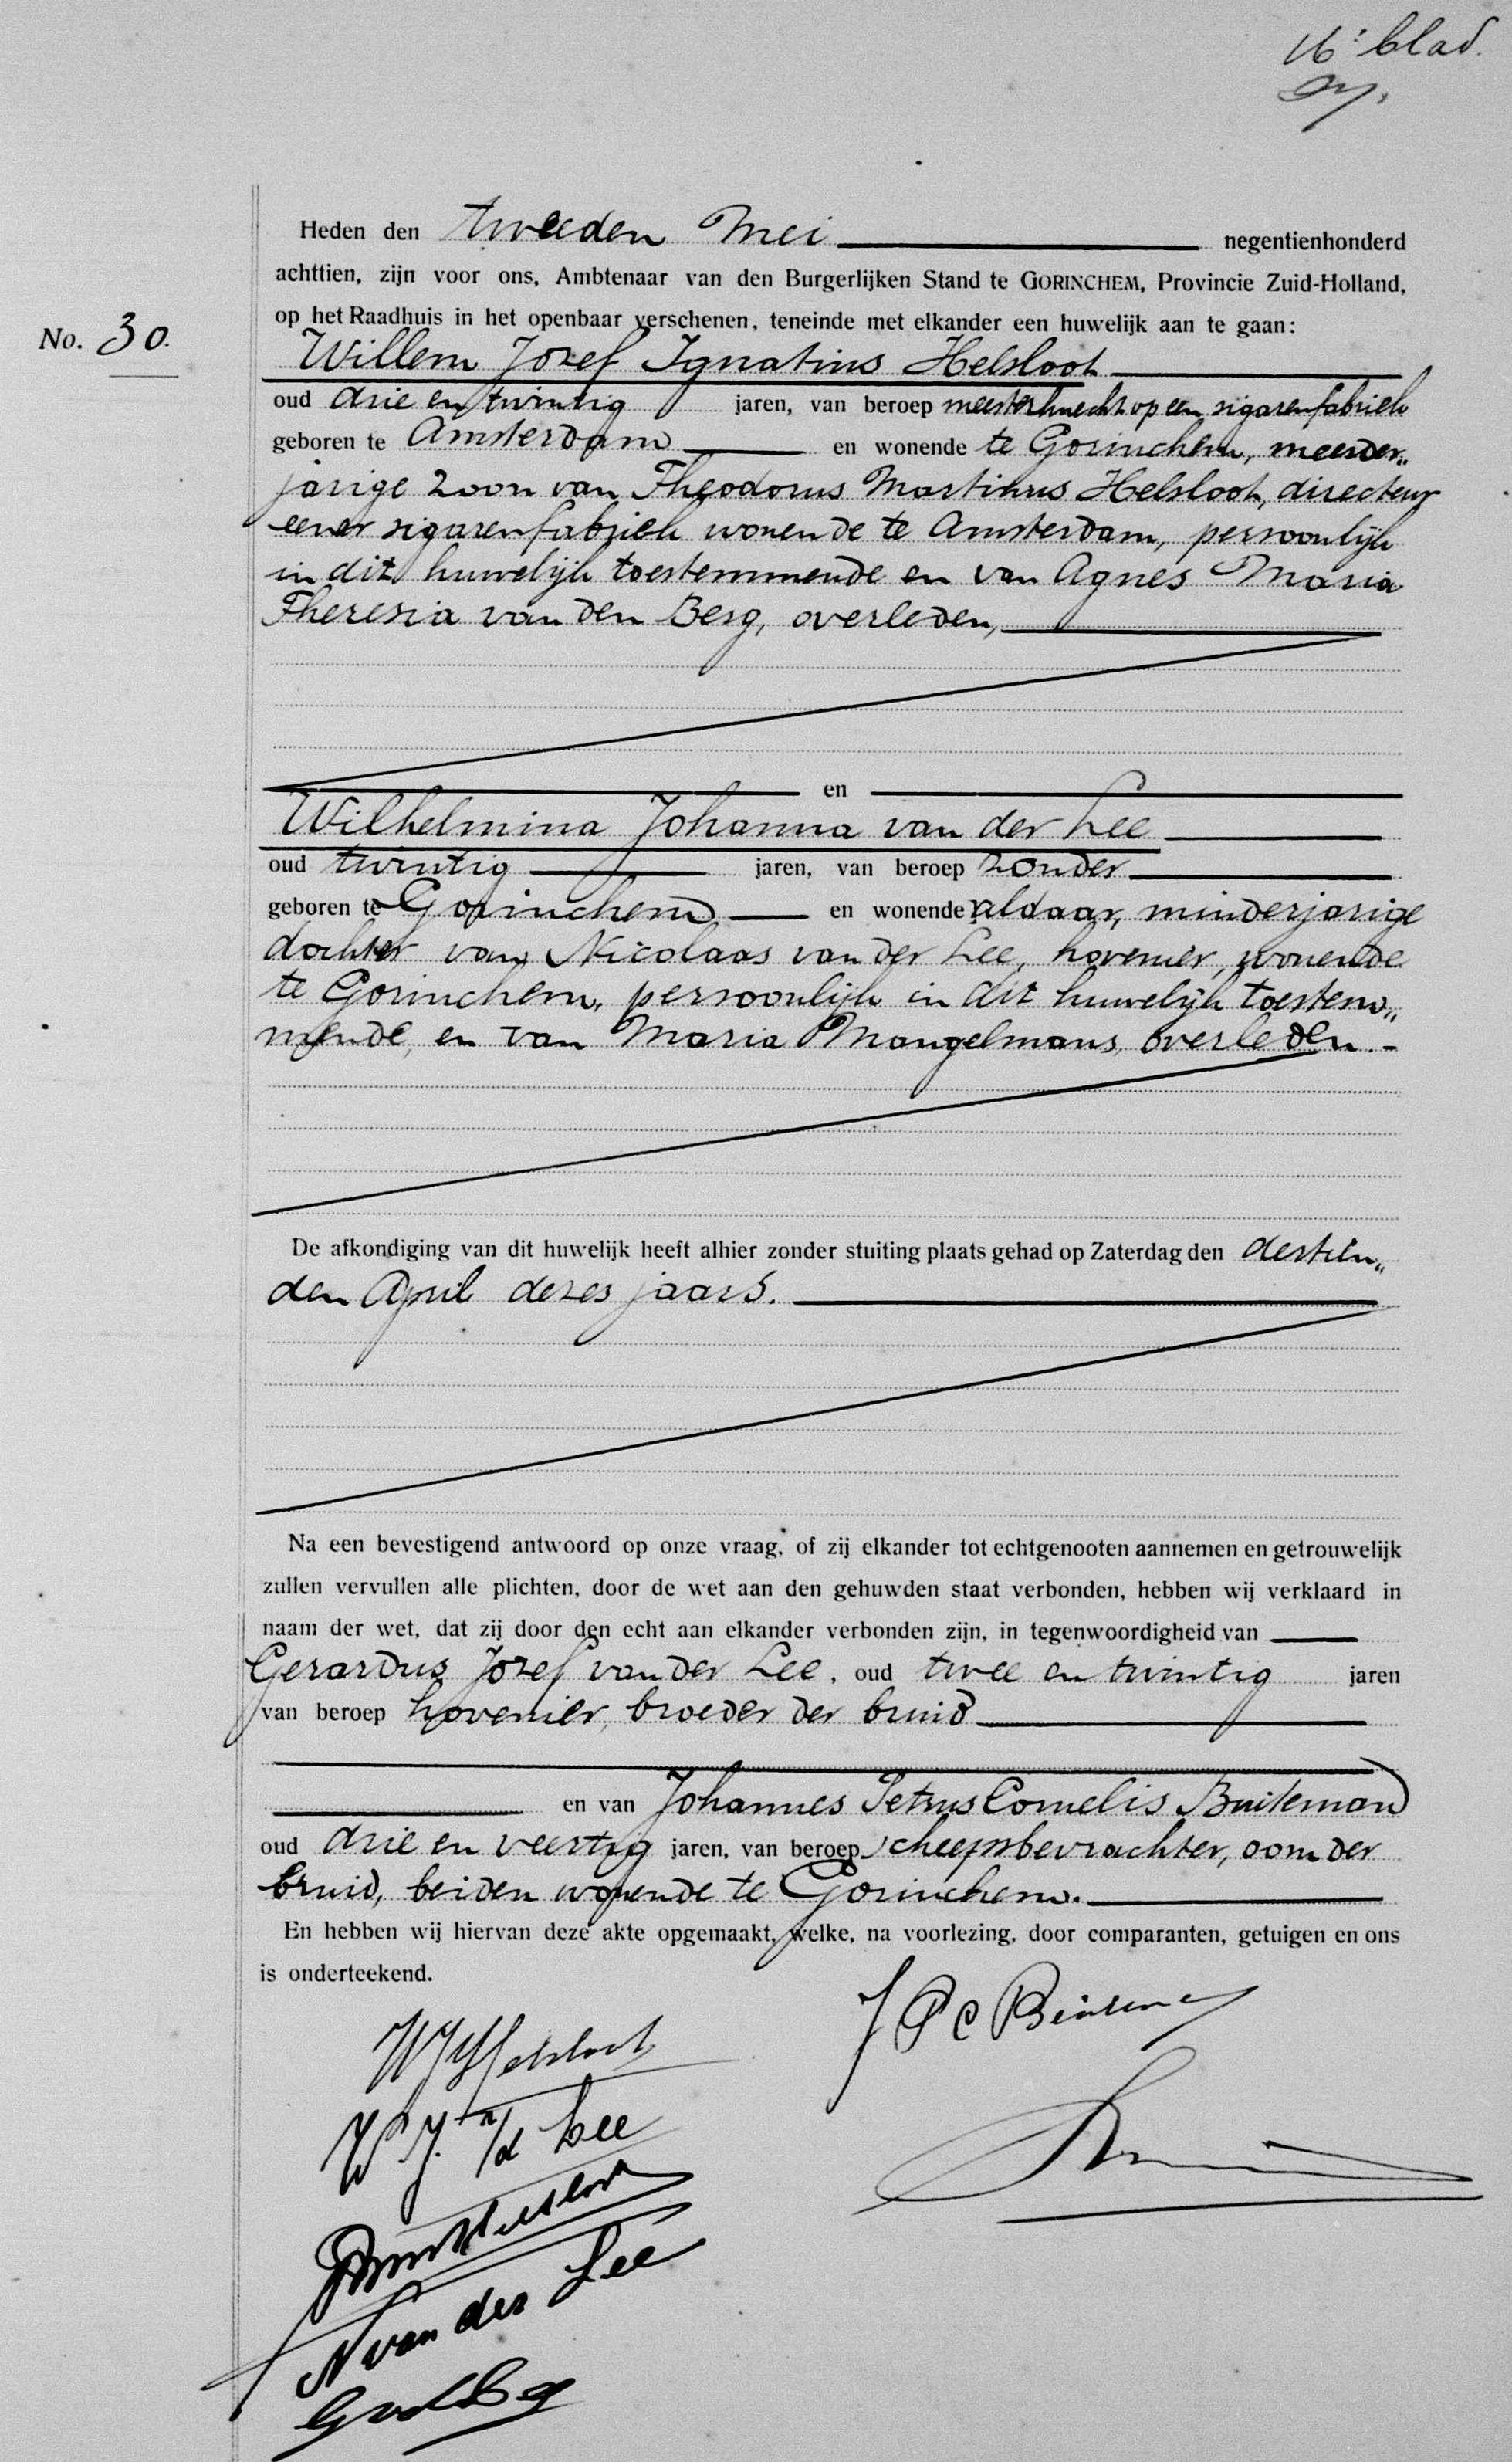 16e blad.
Heden den tweeden Mei negentienhonderd
achttien, zijn voor ons, Ambtenaar van den Burgerlijken Stand te GORINCHEM, Provincie Zuid-Holland,
op het Raadhuis in het openbaar verschenen, teneinde met elkander een huwelijk aan te gaan:
No. 30.
Willem Jozef Ignatius Helsloot
oud drie en twintig jaren, van beroep meesterknecht op een sigarenfabriek
geboren te Amsterdam en wonende te Gorinchem, meerder„
jarige zoon van Theodorus Martinus Helsloot, directeur
eener sigarenfabriek wonende te Amsterdam, persoonlijk
in dit huwelijk toestemmende en van Agnes Maria
Theresia van den Berg, overleden,
en
Wilhelmina Johanna van der Lee
oud twintig jaren, van beroep zonder
geboren te Gorinchem en wonende aldaar, minderjarige
dochter van Nicolaas van der Lee, hovenier, wonende
te Gorinchem, persoonlijk in dit huwelijk toestem„
mende, en van Maria Mangelmans, overleden.-
De afkondiging van dit huwelijk heeft alhier zonder stuiting plaats gehad op Zaterdag den dertien„
den April dezes jaars.
Na een bevestigend antwoord op onze vraag, of zij elkander tot echtgenooten aannemen en getrouwelijk
zullen vervullen alle plichten, door de wet aan den gehuwden staat verbonden, hebben wij verklaard in
naam der wet, dat zij door den echt aan elkander verbonden zijn, in tegenwoordigheid van
Gerardus Jozef van der Lee, oud twee en twintig jaren
van beroep hovenier, broeder der bruid
en van Johannes Petrus Cornelis Buiteman
oud drie en veertig jaren, van beroep scheepsbevrachter, oom der
bruid, beiden wonende te Gorinchem.
En hebben wij hiervan deze akte opgemaakt, welke, na voorlezing, door comparanten, getuigen en ons
is onderteekend.
WJI Helsloot
J P C Buiteman
W J. v/d Lee
N van der Lee